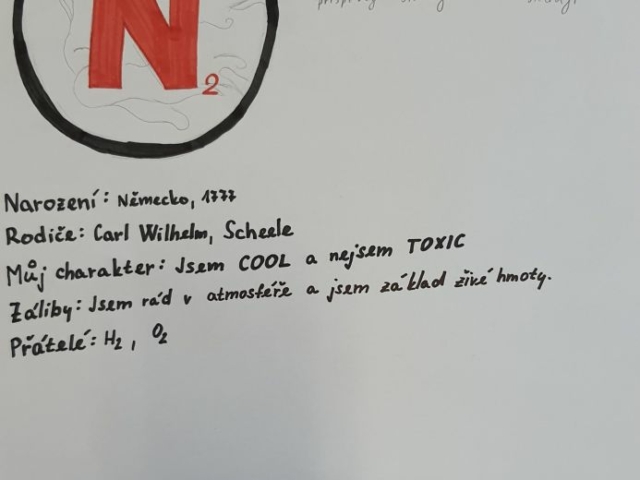 N2
Narození: Německo, 1777
Rodiče: Carl Wilhelm, Scheele
Můj charakter: Jsem COOL a nejsem TOXIC
Záliby: Jsem rád v atmosféře a jsem základ živé hmoty.
Přátelé: H2, O2